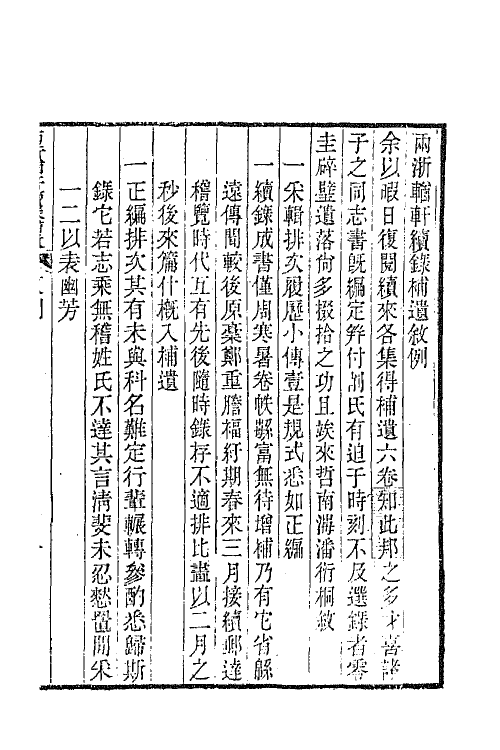 兩浙輶軒續錄補遺敘例
余以暇日復閱續來各集得補遺六卷知此邦之多才喜諸
子之同志書旣編定筓付剞氏有迫于時刻不及選錄者零
圭碎璧遺落尙多掇拾之功且竢來哲南海潘衍桐敘
一采輯排次履歷小傳壹是規式悉如正編
一續錄成書僅周寒暑卷帙緐富無待增補乃有它省緜
遠傳聞較後原稾鄭重膽福紆期春來三月接續郵達
稽覽時代互有先後隨時錄存不適排比畫以二月之
秒後來篇什槪入補遺
一正編排次其有未與科名難定行輩輾轉參酌悉歸斯
錄它若志乘無稽姓氏不達其言淸斐未忍愸置閒采
一二以表幽芳